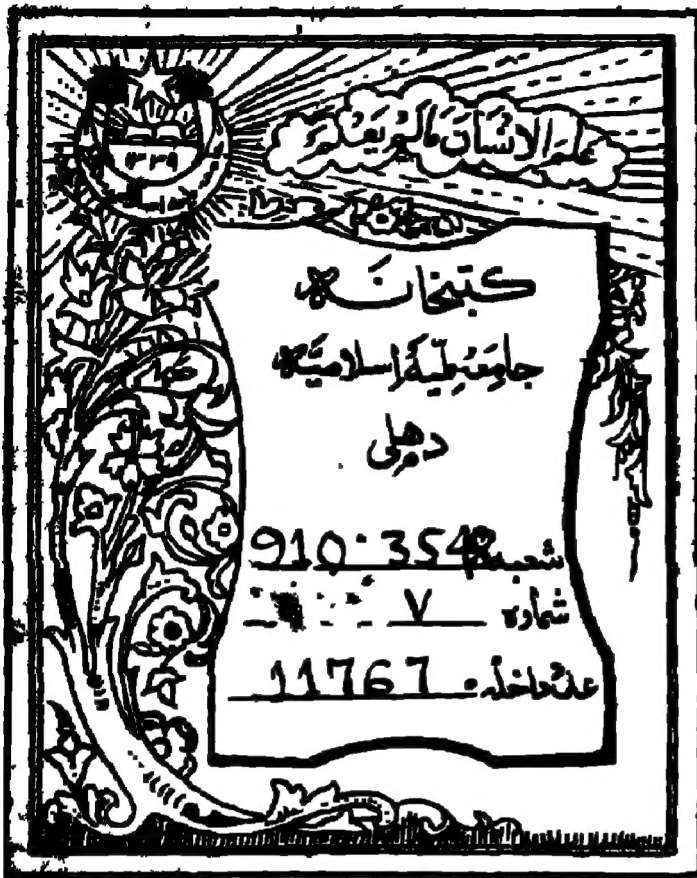 علم الانسان مالم يعلم
۱۳۳۹
کتبخانه
جامعہ ملیہ اسلامیہ
دهلی
شعبه 910.3548
شماره ٧
داخله 11767